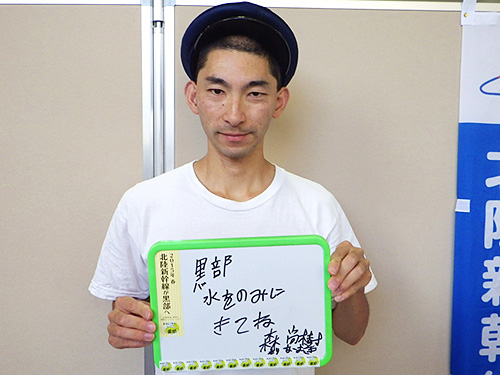 黒部
水をのみに
きてね
2015年春
北陸新幹線が黒部へ
北陸新幹